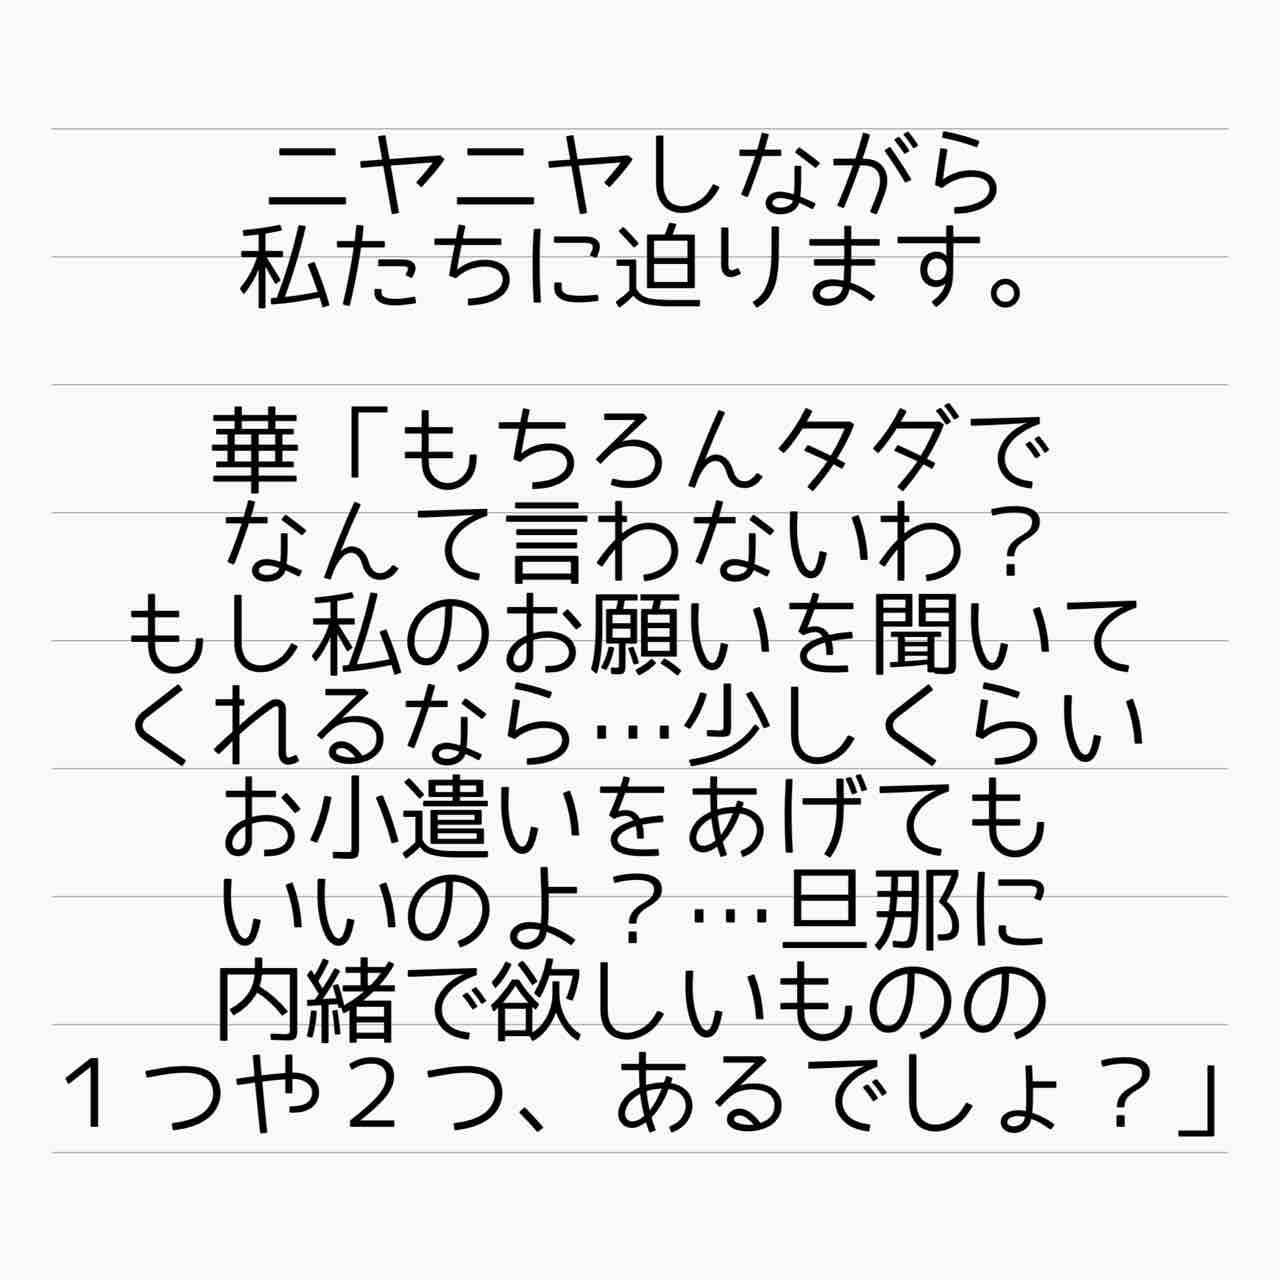 ニヤニヤしながら
私たちに迫ります。
華「もちろんタダで
なんて言わないわ？
もし私のお願いを聞いて
くれるなら…少しくらい
お小遣いをあげても
いいのよ？…旦那に
内緒で欲しいものの
１つや２つ、あるでしょ？」